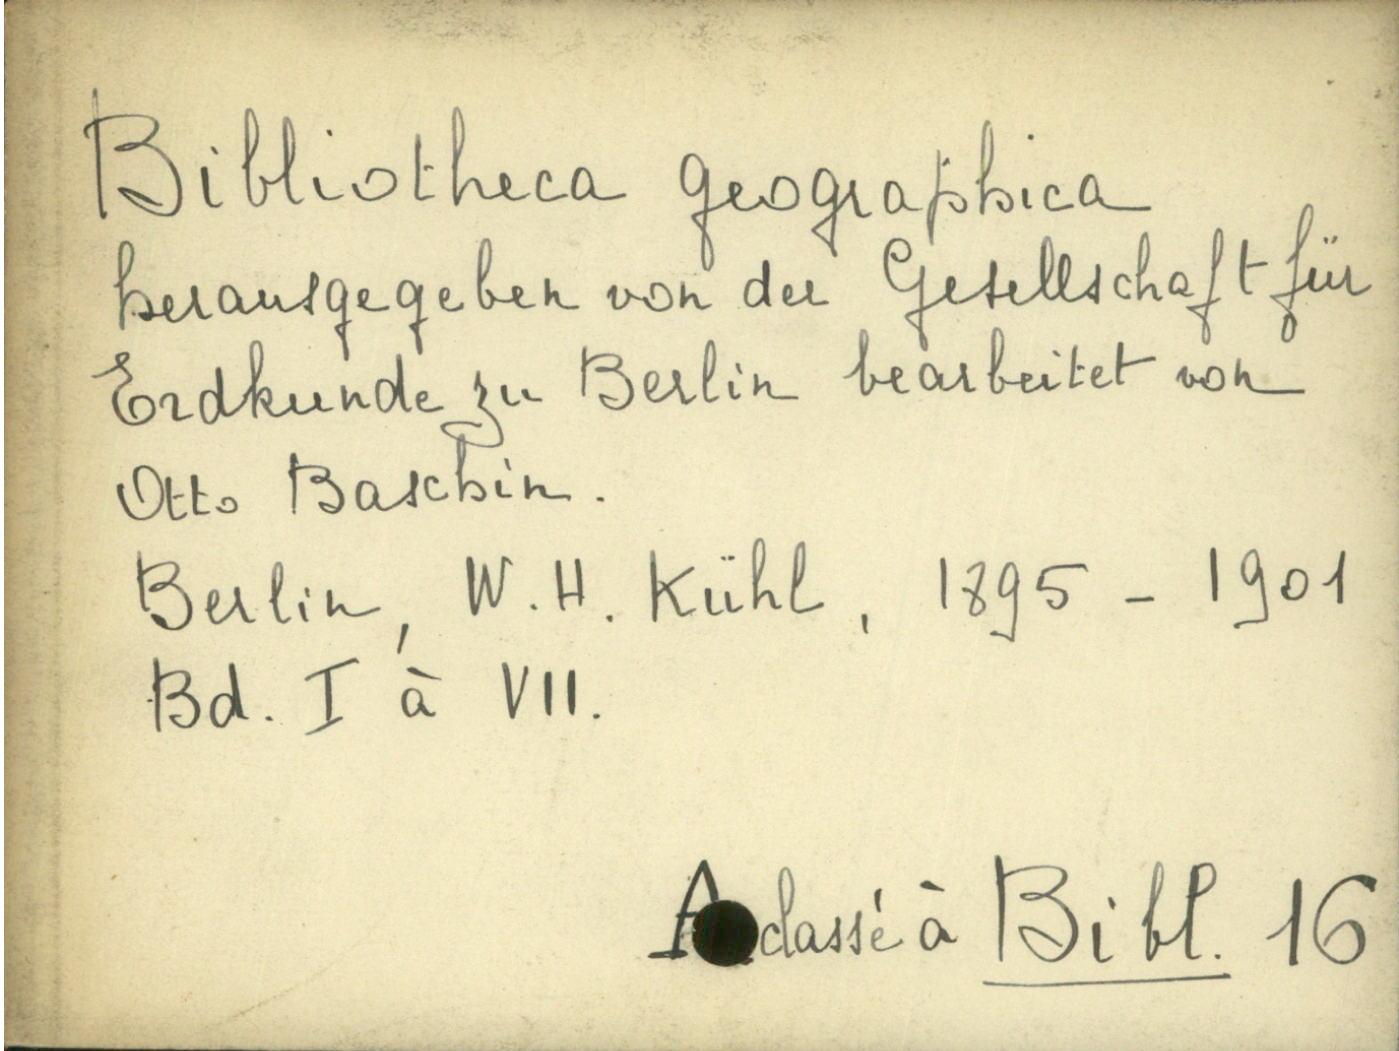 Bibliotheca geographica
herausgegeben von der Gesellschaft für
Erdkunde zu Berlin bearbeitet von
Otto Baschin.
Berlin, W. H. Kühl, 1895 - 1901
Bd. I à VII.
A classé à Bibl. 16